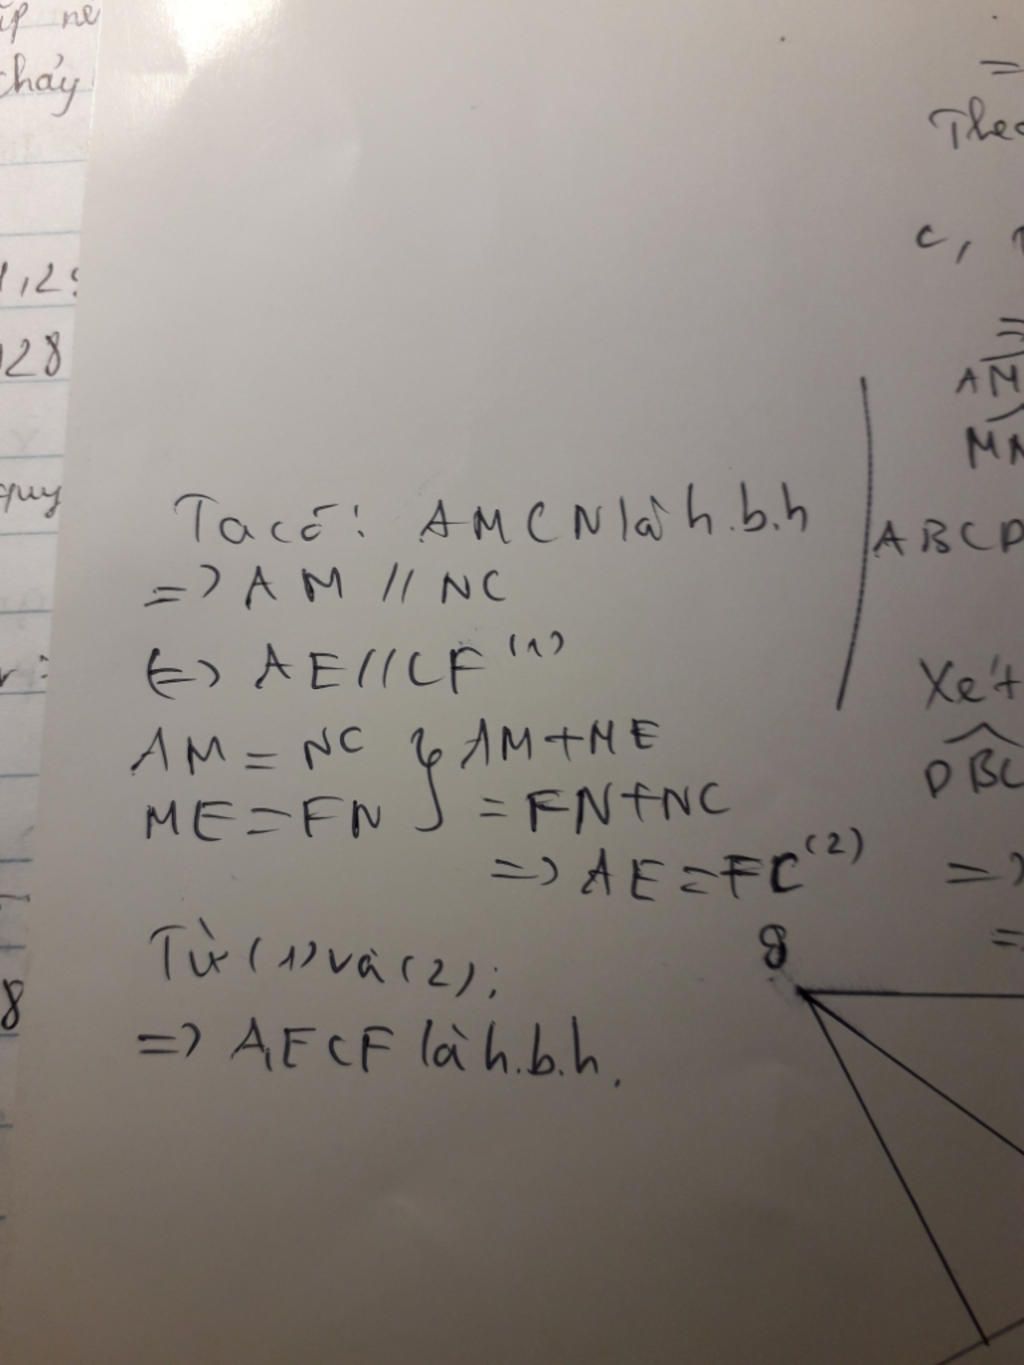 chảy
128
quy
8
Ta có: AMCN là h.b.h
=> AM // NC
<=> AE // CF (1)
AM = NC } AM + ME
ME = FN } = FN + NC
=> AE = FC (2)
Từ (1) và (2);
=> AECF là h.b.h.
=
c,
=
AM
MN
ABCD
Xét
DBC
=>
=
8